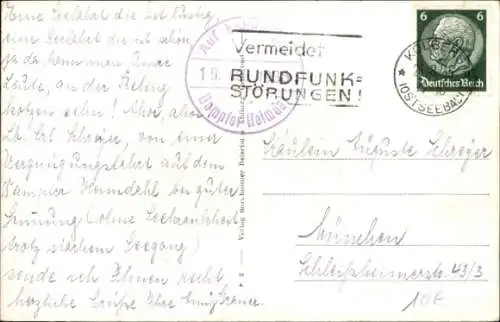 Eine Seefahrt die ist lustig
eine Seefahrt die ist schön,
ja da kann man
Leute, an der Reling
sehn! Ahoi, ahoi
Lb. Frl. Schreyer, von einer
Vergnügungsfahrt auf dem
Dampfer bei guter
Stimmung (ohne Seekrankheit
trotz starkem Seegang)
sende ich Ihnen recht
herzliche Grüße Ihre
Auf hoher
19.
Dampfer
Vermeidet
RUNDFUNK=
STÖRUNGEN!
KOLBERG
(OSTSEEBAD)
6 6
Deutsches Reich
Verlag
Fräulein Auguste Schreyer
München
Schleißheimerstr. 43/3
10€